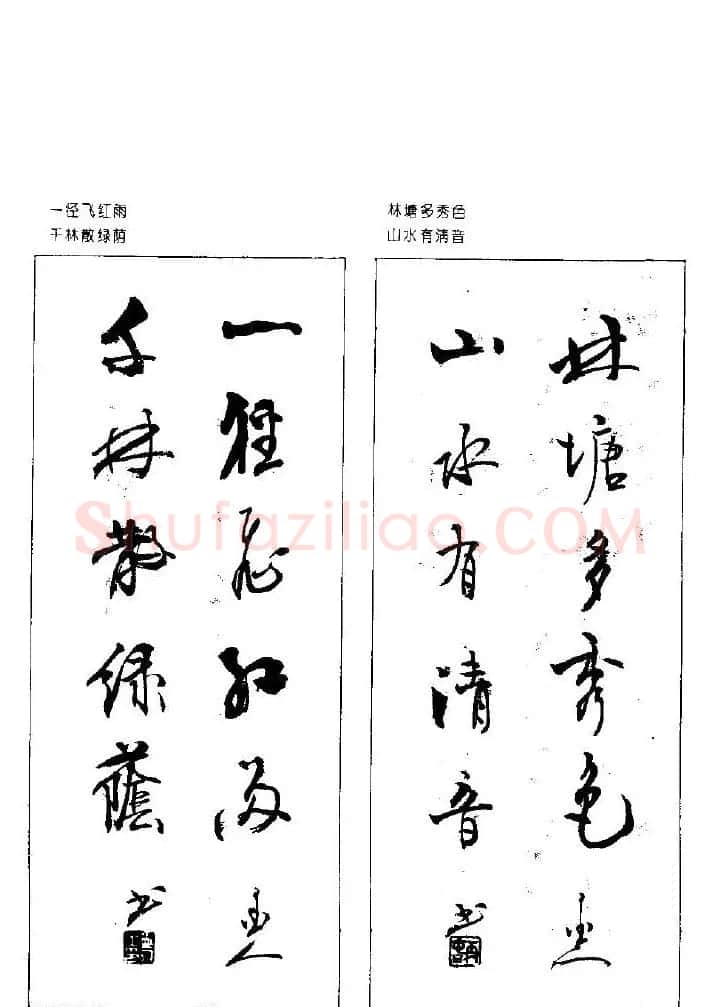 一径飞红雨
千林散绿荫
林塘多秀色
山水有清音
一徑飛紅雨
千林散绿蔭
書
林塘多秀色
山水有清音
書
Shufaziliao.COM